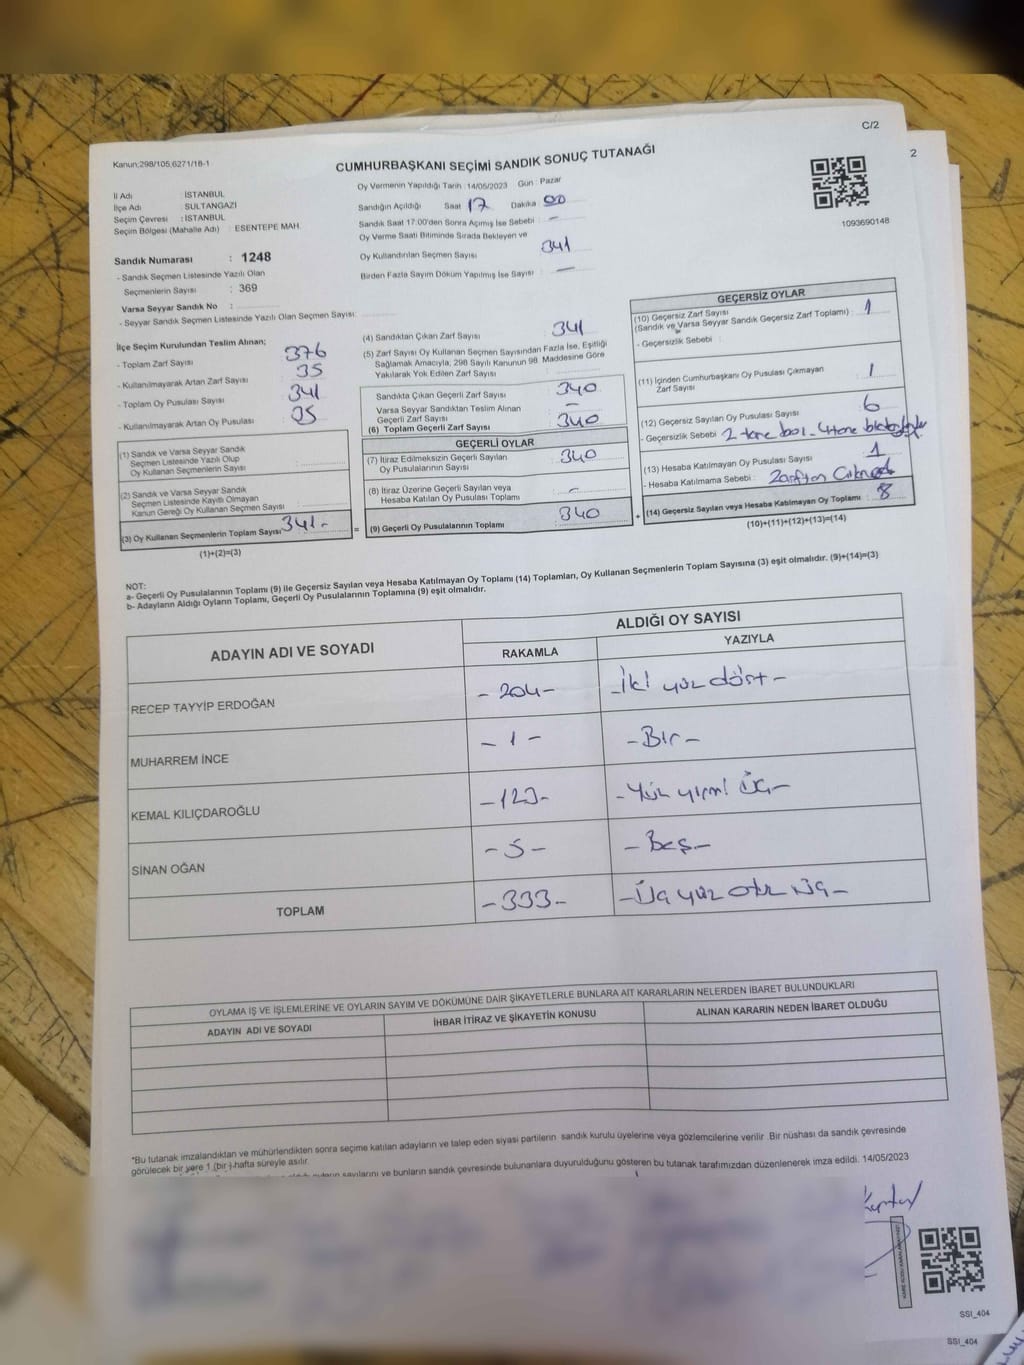 C/2
2
Kanun:298/105,6271/18-1
CUMHURBAŞKANI SEÇİMİ SANDIK SONUÇ TUTANAĞI
1093690148
İl Adı : İSTANBUL
İlçe Adı : SULTANGAZİ
Seçim Çevresi : İSTANBUL
Seçim Bölgesi (Mahalle Adı) : ESENTEPE MAH.
Sandık Numarası : 1248
- Sandık Seçmen Listesinde Yazılı Olan
Seçmenlerin Sayısı : 369
Varsa Seyyar Sandık No :
- Seyyar Sandık Seçmen Listesinde Yazılı Olan Seçmen Sayısı:
Oy Vermenin Yapıldığı Tarih :14/05/2023 Gün : Pazar
Sandığın Açıldığı Saat 17 Dakika 00
Sandık Saat 17:00'den Sonra Açımış İse Sebebi : -
Oy Verme Saati Bitiminde Sırada Bekleyen ve
Oy Kullandırılan Seçmen Sayısı 341
Birden Fazla Sayım Döküm Yapılmış İse Sayısı : -
İlçe Seçim Kurulundan Teslim Alınan;
- Toplam Zarf Sayısı 376
- Kullanılmayarak Artan Zarf Sayısı : 35
- Toplam Oy Pusulası Sayısı : 341
- Kullanılmayarak Artan Oy Pusulası : 35
(1) Sandık ve Varsa Seyyar Sandık
Seçmen Listesinde Yazılı Olup
Oy Kullanan Seçmenlerin Sayısı :
(2) Sandık ve Varsa Seyyar Sandık
Seçmen Listesinde Kayıtlı Olmayan
Kanun Gereği Oy Kullanan Seçmen Sayısı :
(3) Oy Kullanan Seçmenlerin Toplam Sayısı 341-
(1)+(2)=(3)
(4) Sandıktan Çıkan Zarf Sayısı : 341
(5) Zarf Sayısı Oy Kullanan Seçmen Sayısından Fazla İse, Eşitliği
Sağlamak Amacıyla, 298 Sayılı Kanunun 98. Maddesine Göre
Yakılarak Yok Edilen Zarf Sayısı :
Sandıkta Çıkan Geçerli Zarf Sayısı : 340
Varsa Seyyar Sandıktan Teslim Alınan
Geçerli Zarf Sayısı : -
(6) Toplam Geçerli Zarf Sayısı : 340
GEÇERLİ OYLAR
(7) İtiraz Edilmeksizin Geçerli Sayılan
Oy Pusulalarının Sayısı : 340
(8) İtiraz Üzerine Geçerli Sayılan veya
Hesaba Katılan Oy Pusulası Toplamı : -
= (9) Geçerli Oy Pusulalarının Toplamı : 340 +
GEÇERSİZ OYLAR
(10) Geçersiz Zarf Sayısı
(Sandık ve Varsa Seyyar Sandık Geçersiz Zarf Toplamı) : 1
- Geçersizlik Sebebi :
(11) İçinden Cumhurbaşkanı Oy Pusulası Çıkmayan
Zarf Sayısı : 1
(12) Geçersiz Sayılan Oy Pusulası Sayısı : 6
- Geçersizlik Sebebi : 2 tane boş - 4 tane
(13) Hesaba Katılmayan Oy Pusulası Sayısı : 1
- Hesaba Katılmama Sebebi : Zarftan
(14) Geçersiz Sayılan veya Hesaba Katılmayan Oy Toplamı : 8
(10)+(11)+(12)+(13)=(14)
NOT:
a- Geçerli Oy Pusulalarının Toplamı (9) ile Geçersiz Sayılan veya Hesaba Katılmayan Oy Toplamı (14) Toplamları, Oy Kullanan Seçmenlerin Toplam Sayısına (3) eşit olmalıdır. (9)+(14)=(3)
b- Adayların Aldığı Oyların Toplamı, Geçerli Oy Pusulalarının Toplamına (9) eşit olmalıdır.
ADAYIN ADI VE SOYADI
ALDIĞI OY SAYISI
RAKAMLA YAZIYLA
RECEP TAYYİP ERDOĞAN - 204 - - İki yüz dört -
MUHARREM İNCE - 1 - - Bir -
KEMAL KILIÇDAROĞLU - 123 - - Yüz yirmi üç -
SİNAN OĞAN - 5 - - Beş -
TOPLAM - 333 - - Üç yüz otuz üç -
OYLAMA İŞ VE İŞLEMLERİNE VE OYLARIN SAYIM VE DÖKÜMÜNE DAİR ŞİKAYETLERLE BUNLARA AİT KARARLARIN NELERDEN İBARET BULUNDUKLARI
ADAYIN ADI VE SOYADI İHBAR İTİRAZ VE ŞİKAYETİN KONUSU ALINAN KARARIN NEDEN İBARET OLDUĞU
*Bu tutanak imzalandıktan ve mühürlendikten sonra seçime katılan adayların ve talep eden siyasi partilerin sandık kurulu üyelerine veya gözlemcilerine verilir .Bir nüshası da sandık çevresinde
görülecek bir yere 1 (bir )-hafta süreyle asılır.
sayılarını ve bunların sandık çevresinde bulunanlara duyurulduğunu gösteren bu tutanak tarafımızdan düzenlenerek imza edildi. 14/05/2023
SSI_404
SSI_404